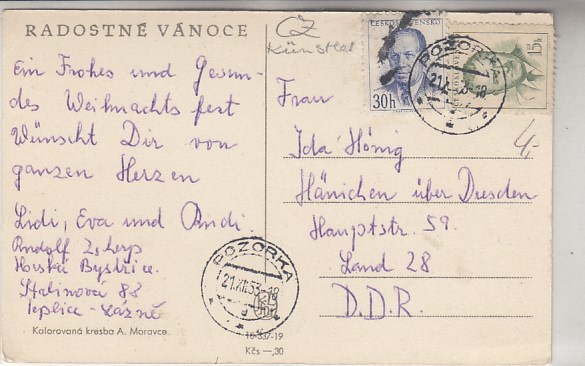 RADOSTNÉ VÁNOCE
CZ
Künstler
ČESKOSLOVENSKO
30h
15h
POZORKA
21.XII.53-18
Ein Frohes und Gesun-
des Weihnachts fest
Wünscht Dir von
ganzen Herzen
Lidi, Eva und Andi.
Rudolf
Horská Bystřice.
Stalinova 88
Teplice - Lázně
Frau
Ida Hönig
Hänichen über Dresden
Hauptstr. 59.
Land 28
D.D.R.
4,-
POZORKA
21.XII.53-18
Kolorovaná kresba A. Moravce.
16-537-19
Kčs —,30